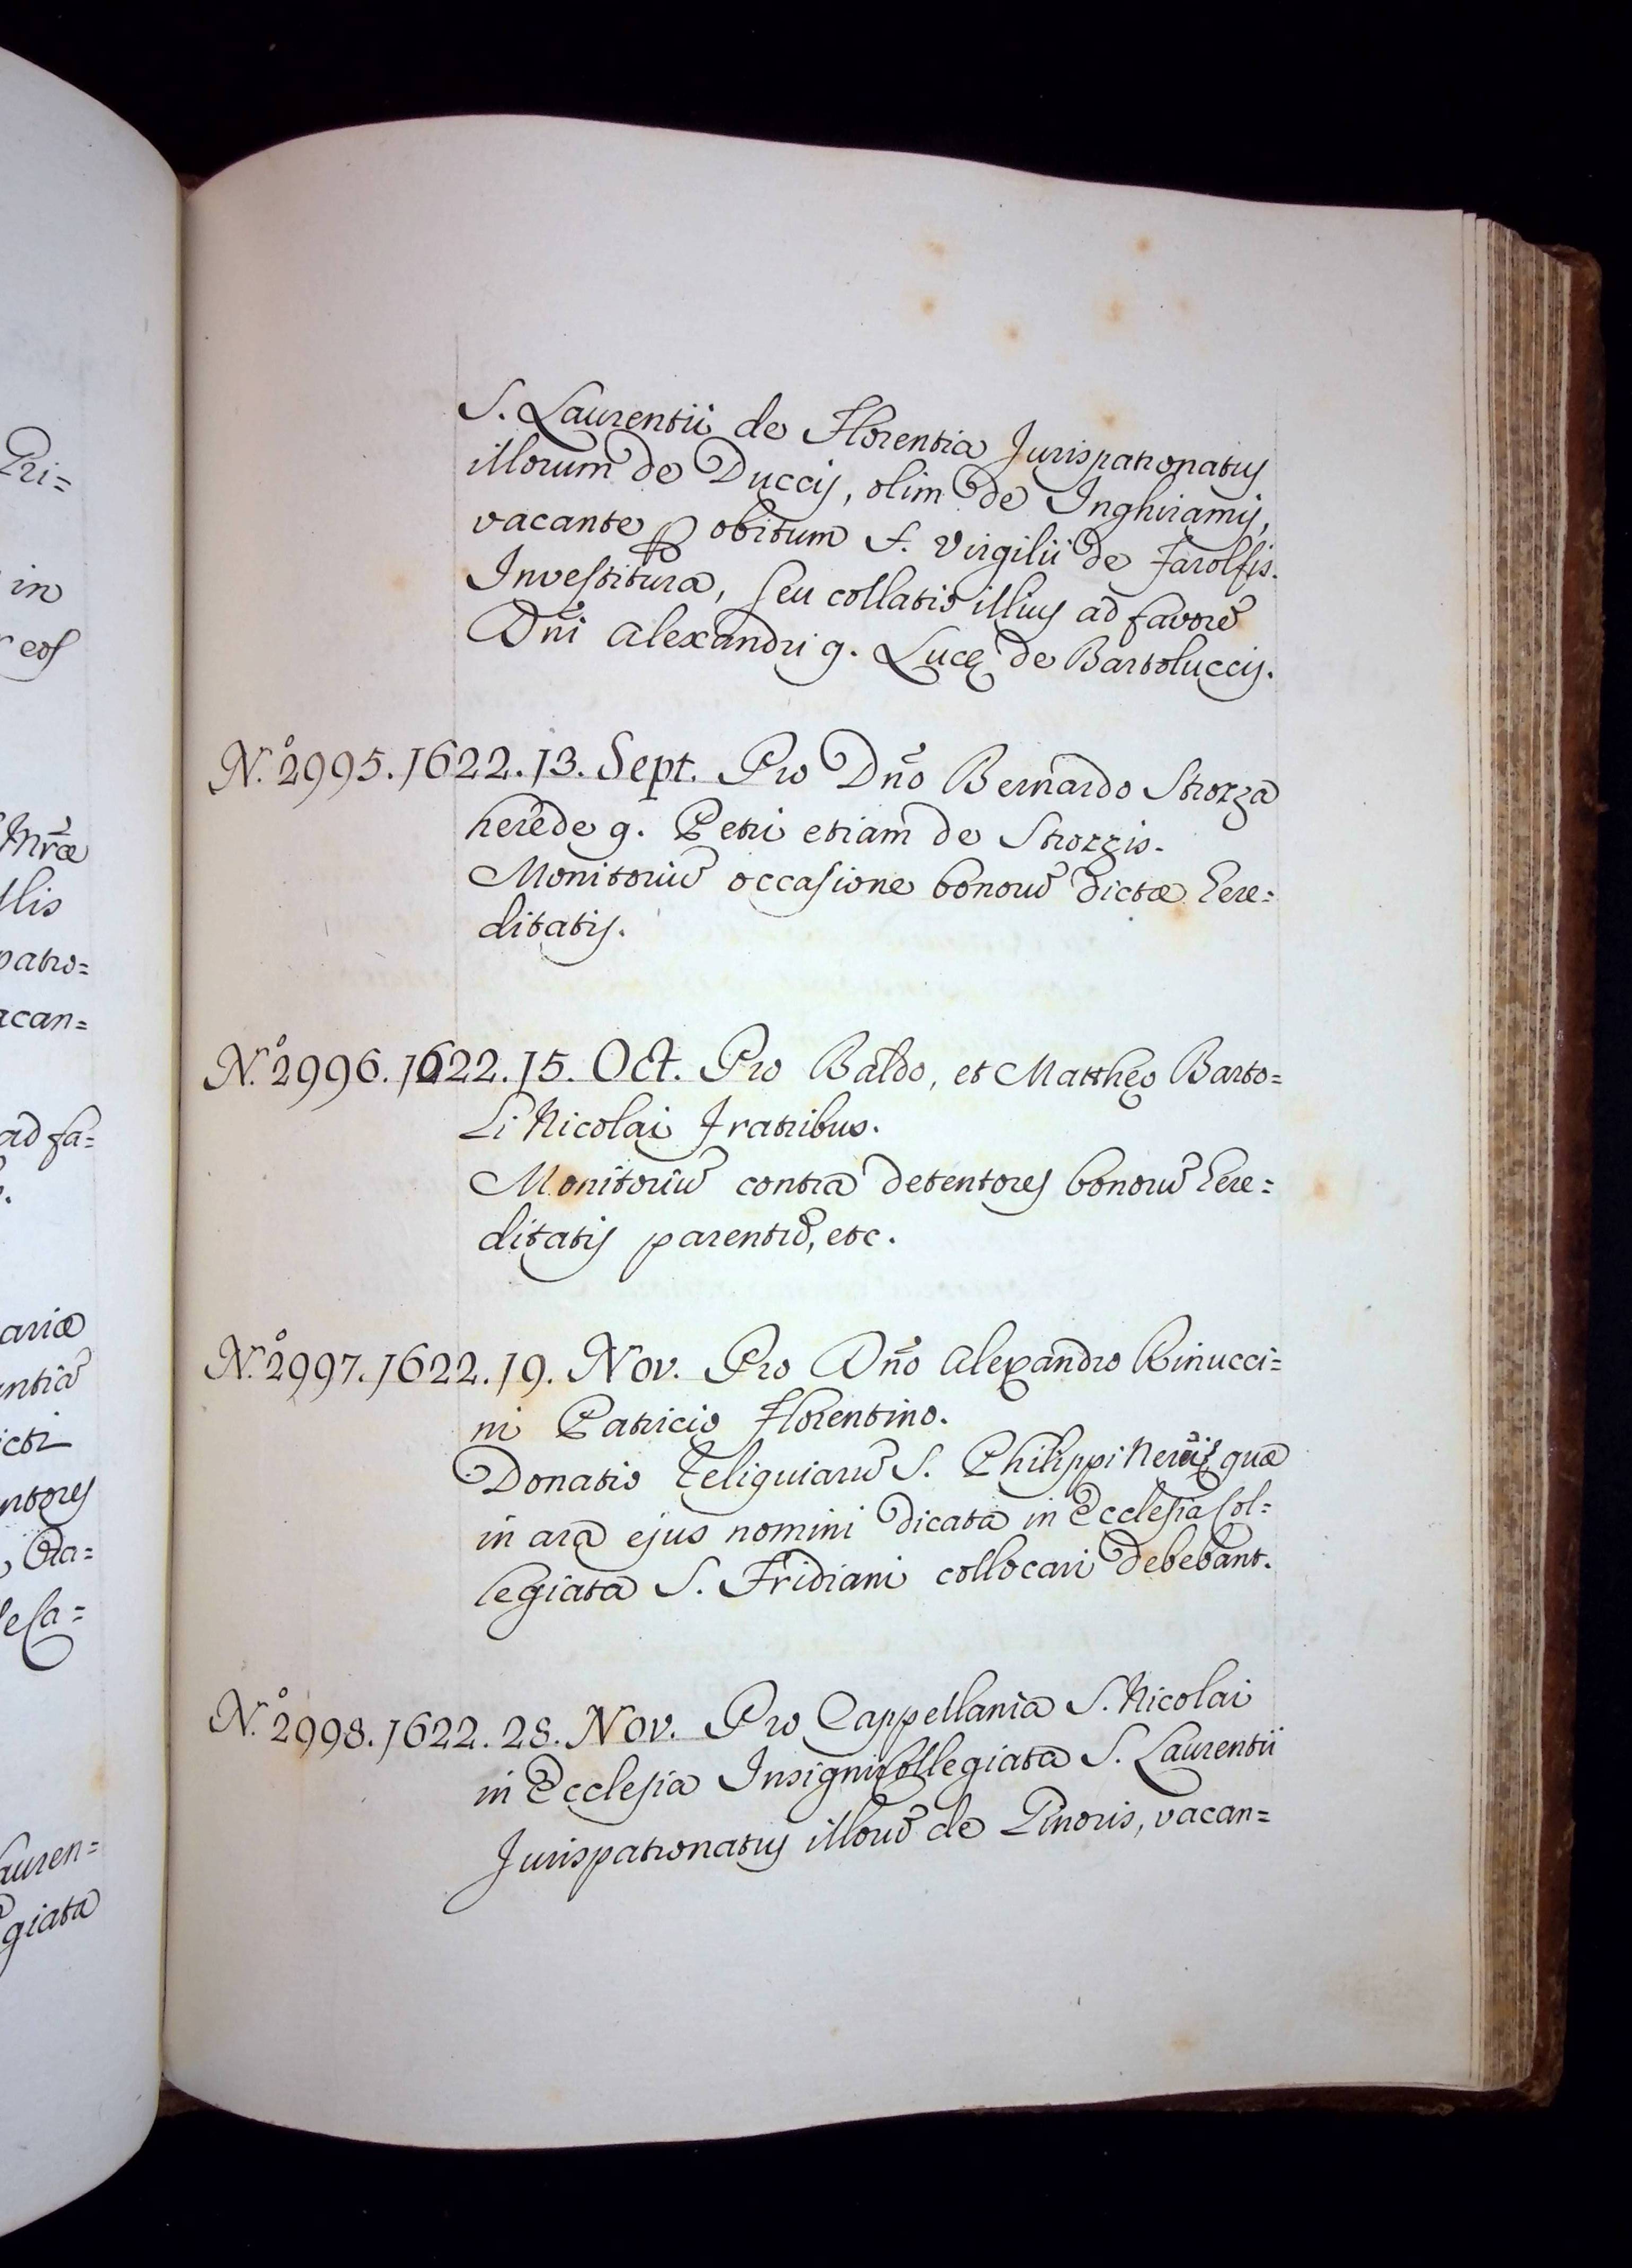 Pri=
in
eos
Mræ
llis
patro=
acan=
ad fa=
ariæ
ntiũ
icti
ntores
, Ora=
le Ca=
auren=
giata
S. Laurentii de Florentia Jurispatronatus
illorum de Duccijs, olim de Inghiramijs,
vacante ꝑ obitum f. Virgilii de Farolfis.
Investitura, seu collatio illius ad favorẽ
Dñi Alexandri q. Lucę de Bartoluccijs.
N.º 2995. 1622. 13. Sept. Pro Dño Bernardo Strozza
herede q. Petri etiam de Strozzis.
Monitoriũ occasione bonorũ dictæ here=
ditatis.
N.º 2996. 1622. 15. Oct. Pro Baldo, et Matthęo Barto=
li Nicolai Fratribus.
Monitoriũ contra detentores bonorũ here=
ditatis parentũ, etc.
N.º 2997. 1622. 19. Nov. Pro Dño Alexandro Rinucci=
ni Patricio Florentino.
Donatio Reliquiarũ S. Philippi Nerii, quæ
in ara ejus nomini dicata in Ecclesia Col=
legiata S. Fridiani collocari debebant.
N.º 2998. 1622. 28. Nov. Pro Cappellania S. Nicolai
in Ecclesia Insigni Collegiata S. Laurentii
Jurispatronatus illorũ de Ginoris, vacan=